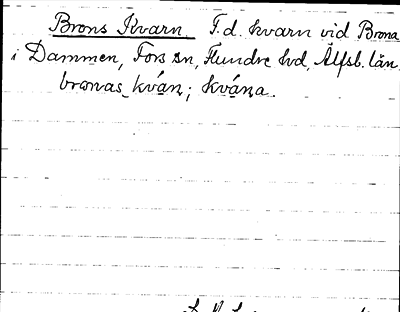 Brons Kvarn F.d. kvarn vid Brona
i Dammen, Fors sn, Flundre hd, Älfsb. län.
bronas kván; kvána.